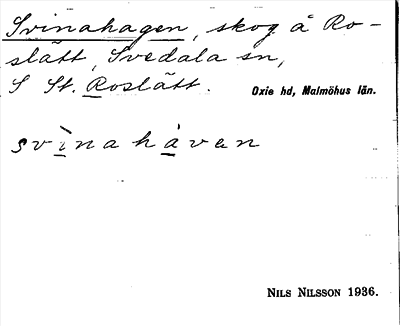 Svinahagen, skog å Ro-
slätt, Svedala sn,
S St. Roslätt.
Oxie hd, Malmöhus län.
svìnahàven
NILS NILSSON 1936.